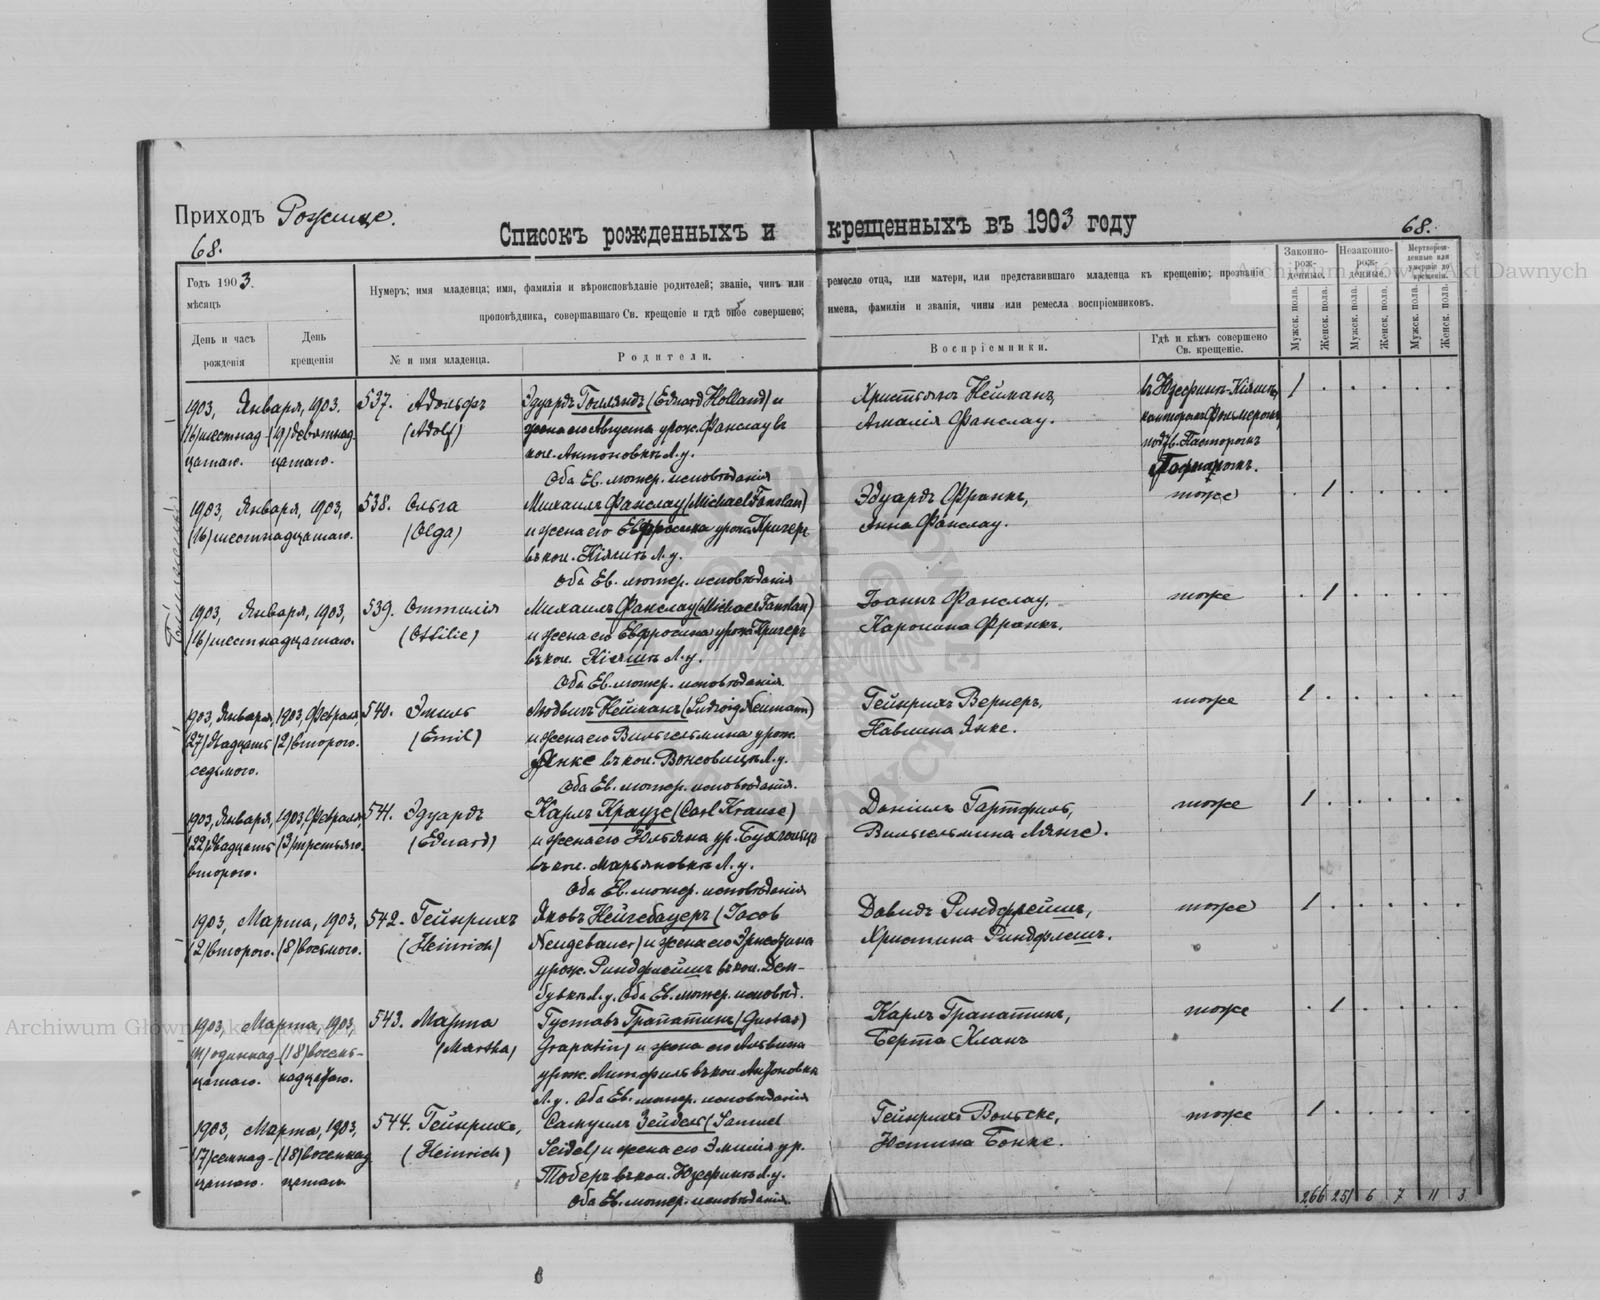 Приходъ Рожище.
68.
Списокъ рожденныхъ и крещенныхъ въ 1903 году
68.
Годъ 1903.
мѣсяцъ
Нумеръ; имя младенца; имя, фамилія и вѣроисповѣданіе родителей; званіе, чинъ или
ремесло отца, или матери, или представившаго младенца къ крещенію; прозваніе
проповѣдника, совершавшаго Св. крещеніе и гдѣ оное совершено;
имена, фамиліи и званія, чины или ремесла воспріемниковъ.
Законно-
рож-
денные.
Незаконно-
рож-
денные.
Мертворож-
денные или
умершіе до
крещенія.
День и часъ
рожденія
День
крещенія
№ и имя младенца.
Родители.
Воспріемники.
Гдѣ и кѣмъ совершено
Св. крещеніе.
Мужск. пола.
Женск. пола.
Мужск. пола.
Женск. пола.
Мужск. пола.
Женск. пола.
1903, Января, 1903.
(16) шестнад- (19) девятнад-
цатаго. цатаго.
537. Адольфъ
(Adolf)
Эдуардъ Голландъ (Eduard Holland) и
жена его Августа урож. Фанслау въ
кол. Антоновкѣ Л. у.
Оба Ев. лютер. исповѣданія
Христіанъ Нейманъ,
Амалія Фанслау.
въ Юзефинѣ-
канторомъ
Пасторомъ
1903, Января, 1903,
(16) шестнадцатаго.
538. Ольга
(Olga)
Михаилъ Фанслау (Michael Fanslau)
и жена его Евфросина урож. Кригеръ
въ кол. Кіяшѣ Л. у.
Оба Ев. лютер. исповѣданія
Эдуардъ Франкъ,
Анна Фанслау.
тоже
1903, Января, 1903,
(16) шестнадцатаго.
539. Оттилія
(Ottilie)
Михаилъ Фанслау (Michael Fanslau)
и жена его Евфросина урож. Кригеръ
въ кол. Кіяшѣ Л. у.
Оба Ев. лютер. исповѣданія
Іоаннъ Фанслау,
Каролина Франкъ.
тоже
Близнецы
1903, Января, 1903, Февраля,
(27) двадцать (2) второго.
седьмого.
540. Эмиль
(Emil)
Людвигъ Нейманъ (Ludwig Neumann)
и жена его Вильгельмина урож.
Янке въ кол. Л. у.
Оба Ев. лютер. исповѣданія.
Гейнрихъ Вернеръ,
Павлина Янке.
тоже
1903, Января, 1903, Февраля,
(22) двадцать (3) третьяго.
второго.
541. Эдуардъ
(Eduard)
Карлъ Краузе (Carl Krause)
и жена его Юльяна ур. Бухгольцъ
въ кол. Марьяновкѣ Л. у.
Оба Ев. лютер. исповѣданія
Даніилъ
Вильгельмина Лянге.
тоже
1903, Марта, 1903,
(2) второго. (8) восьмого.
542. Гейнрихъ
(Heinrich)
Яковъ Нейгебауеръ (Jacob
Neugebauer) и жена его
урож. Риндфлейшъ въ кол. Дем-
бувкѣ Л. у. Оба Ев. лютер. исповѣд.
Давидъ Риндфлейшъ,
Христина Риндфлешъ.
тоже
1903, Марта, 1903,
(11) одиннад- (18) восем-
цатаго. надцатаго.
543. Марта
(Martha)
Густавъ Грапатинъ (Gustav
Grapatin) и жена его Альвина
урож. въ кол. Антоновкѣ
Л. у. Оба Ев. лютер. исповѣданія
Карлъ Грапатинъ,
Берта Кланъ
тоже
1903, Марта, 1903,
(17) семнад- (18) восемнад
цатаго. цатаго
544. Гейнрихъ,
(Heinrich)
Самуилъ Зейдель (Samuel
Seidel) и жена его Эмилія ур.
Тоберъ въ кол. Юзефинѣ Л. у.
Оба Ев. лютер. исповѣданія.
Гейнрихъ Вольске,
Юстина Бонке.
тоже
266 251 6 7 11 3
Archiwum Główne Akt Dawnych
Archiwum Główne Akt Dawnych